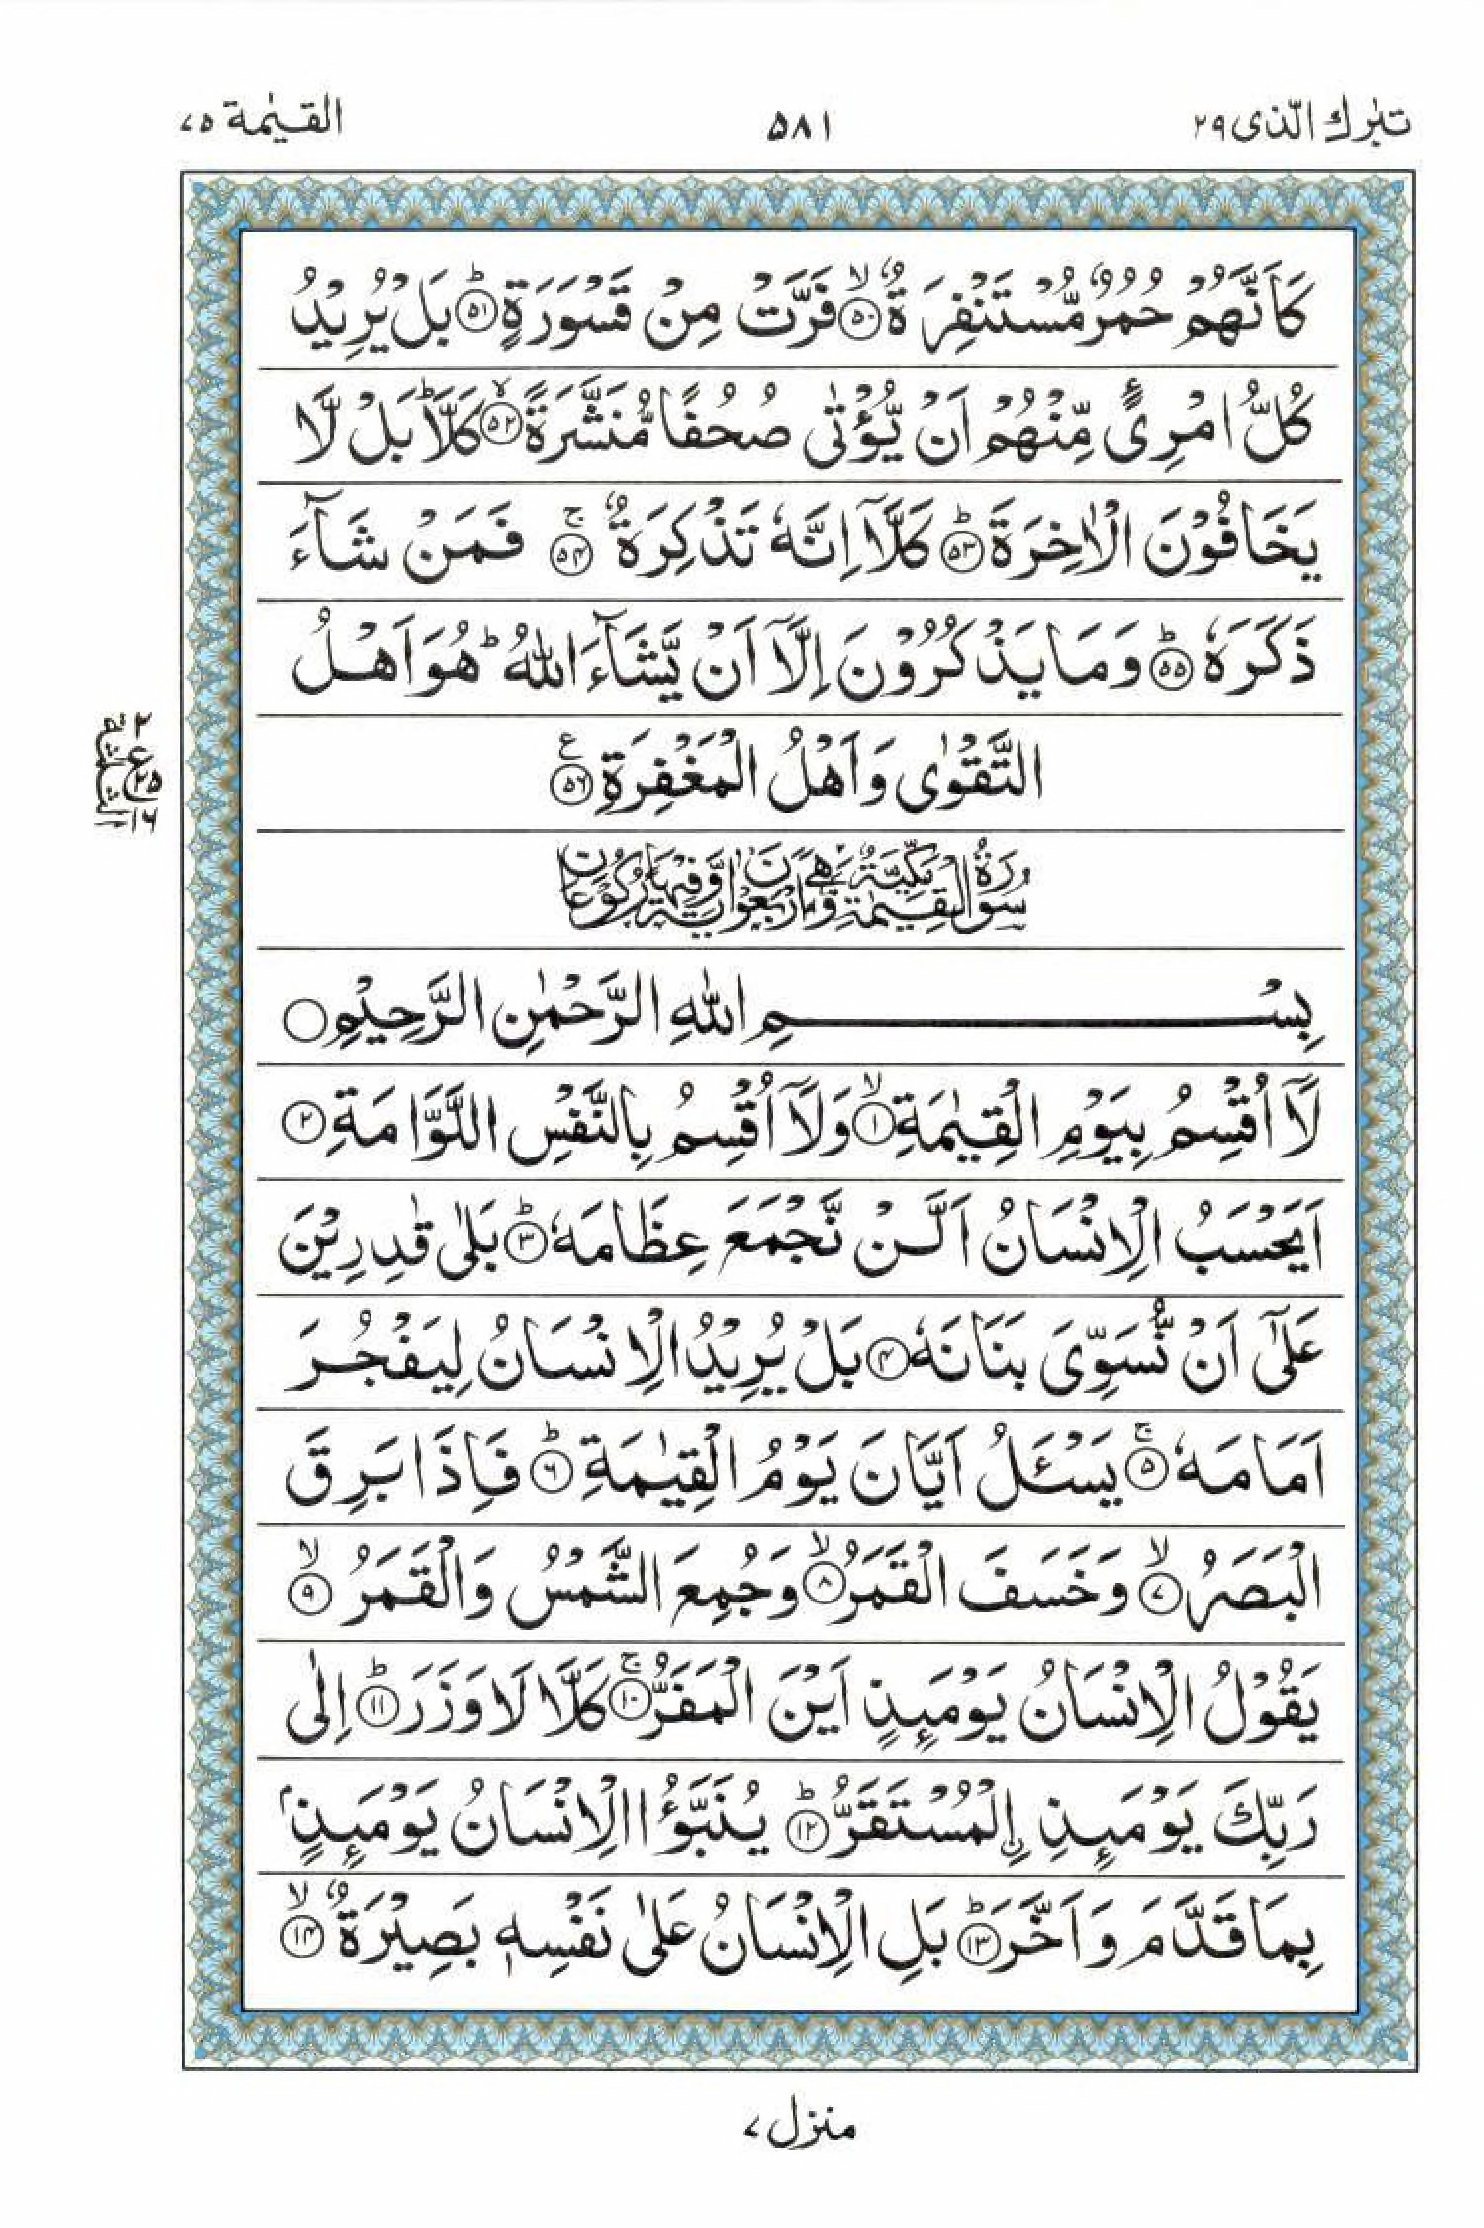 تبٰرك الّذى ٢٩
٥٨١
القيٰمة ٧٥
كَاَنَّهُمْ حُمُرٌ مُّسْتَنْفِرَةٌ ۙ‏﴿۵۰﴾ فَرَّتْ مِنْ قَسْوَرَةٍ ؕ‏﴿۵۱﴾ بَلْ يُرِيْدُ
كُلُّ امْرِیٍٴ مِّنْهُمْ اَنْ يُّؤْتٰى صُحُفًا مُّنَشَّرَةً ۙ‏﴿۵۲﴾ كَلَّا ؕ بَلْ لَّا
يَخَافُوْنَ الْاٰخِرَةَ ؕ‏﴿۵۳﴾ كَلَّاۤ اِنَّهٗ تَذْكِرَةٌ ۚ‏﴿۵۴﴾ فَمَنْ شَآءَ
ذَكَرَهٗ ؕ‏﴿۵۵﴾ وَمَا يَذْكُرُوْنَ اِلَّاۤ اَنْ يَّشَآءَ اللّٰهُ ؕ هُوَ اَهْلُ
التَّقْوٰى وَاَهْلُ الْمَغْفِرَةِ ‏﴿۵۶﴾ ع
٢
ع
٢٥
١٦
الثلٰثة
سُوْرَةُ الْقِيٰمَةِ مَكِّيَّةٌ وَّهِىَ اَرْبَعُوْنَ اٰيَةً وَّفِيْهَا رُكُوْعَانِ
بِسْمِ اللّٰهِ الرَّحْمٰنِ الرَّحِيْمِ ۝
لَاۤ اُقْسِمُ بِيَوْمِ الْقِيٰمَةِ ۙ‏﴿۱﴾ وَلَاۤ اُقْسِمُ بِالنَّفْسِ اللَّوَّامَةِ ‏﴿۲﴾
اَيَحْسَبُ الْاِنْسَانُ اَلَّنْ نَّجْمَعَ عِظَامَهٗ ؕ‏﴿۳﴾ بَلٰى قٰدِرِيْنَ
عَلٰٓى اَنْ نُّسَوِّىَ بَنَانَهٗ ‏﴿۴﴾ بَلْ يُرِيْدُ الْاِنْسَانُ لِيَفْجُرَ
اَمَامَهٗ ۚ‏﴿۵﴾ يَسْئَلُ اَيَّانَ يَوْمُ الْقِيٰمَةِ ؕ‏﴿۶﴾ فَاِذَا بَرِقَ
الْبَصَرُ ۙ‏﴿۷﴾ وَخَسَفَ الْقَمَرُ ۙ‏﴿۸﴾ وَجُمِعَ الشَّمْسُ وَالْقَمَرُ ۙ‏﴿۹﴾
يَقُوْلُ الْاِنْسَانُ يَوْمَئِذٍ اَيْنَ الْمَفَرُّ ۚ‏﴿۱۰﴾ كَلَّا لَا وَزَرَ ؕ‏﴿۱۱﴾ اِلٰى
رَبِّكَ يَوْمَئِذِ ۨالْمُسْتَقَرُّ ؕ‏﴿۱۲﴾ يُنَبَّؤُا الْاِنْسَانُ يَوْمَئِذٍۢ
بِمَا قَدَّمَ وَاَخَّرَ ؕ‏﴿۱۳﴾ بَلِ الْاِنْسَانُ عَلٰى نَفْسِهٖ بَصِيْرَةٌ ۙ‏﴿۱۴﴾
منزل ٧